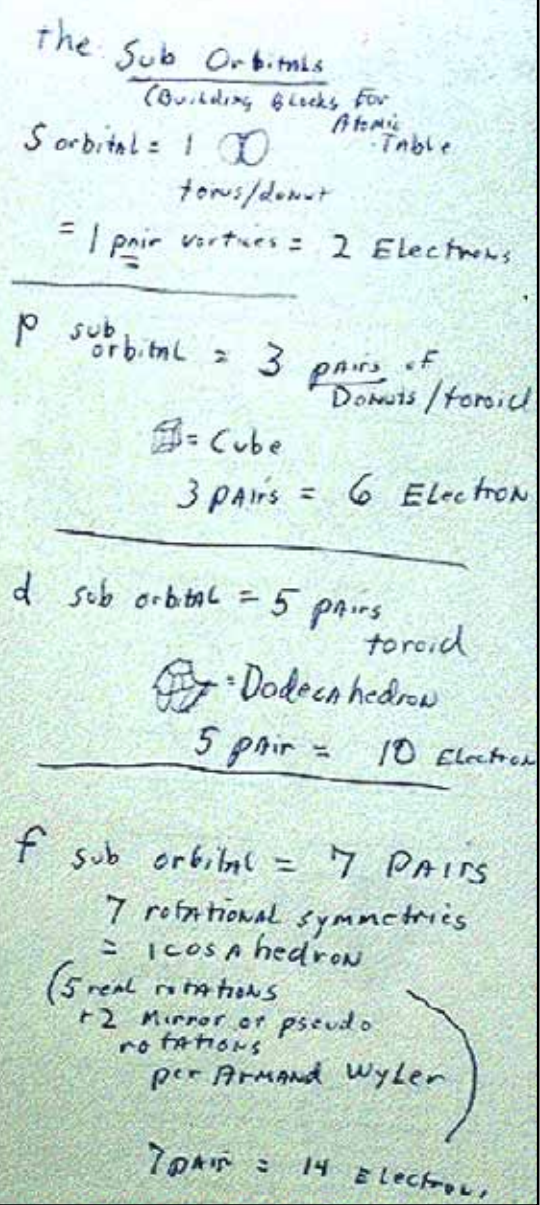 the Sub Orbitals
(Building Blocks For
Atomic
Table
S orbital = 1
torus/donut
= 1 pair vortices = 2 Electrons
p sub
orbital = 3 pairs of
Donuts/toroid
= Cube
3 pairs = 6 Electron
d sub orbital = 5 pairs
toroid
= Dodecahedron
5 pair = 10 Electron
f sub orbital = 7 PAirs
7 rotational symmetries
= icosahedron
(5 real rotations
+2 Mirror or pseudo
rotations
per Armand Wyler
7 pair = 14 Electron,